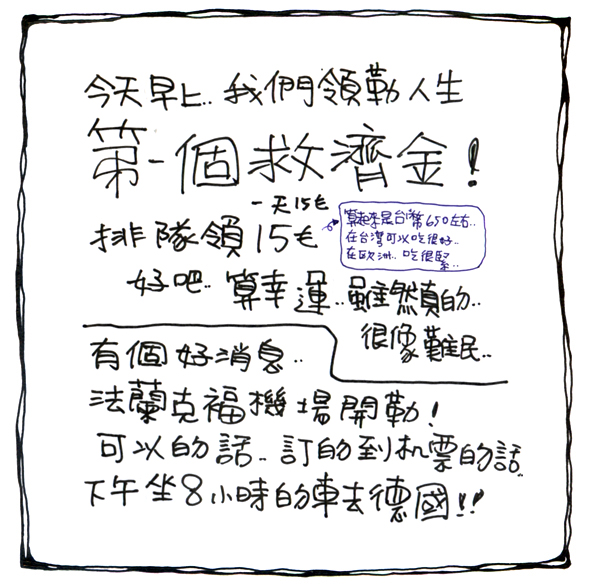 今天早上.. 我們領勒人生
第一個救濟金!
一天15€
排隊領15€
算起來是台幣650左右..
在台灣可以吃很好..
在歐洲.. 吃很緊..
好吧.. 算幸運..雖然真的..
很像難民..
有個好消息..
法蘭克福機場開勒!
可以的話.. 訂的到机票的話..
下午坐8小時的車去德國!!